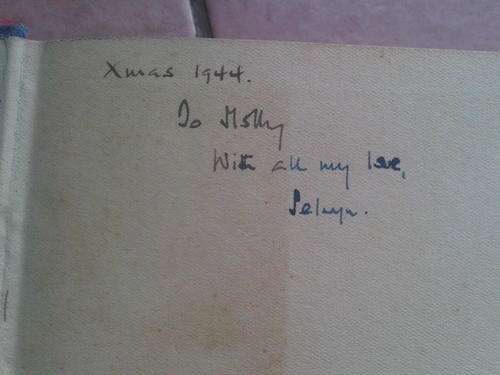 Xmas 1944.
To Molly
With all my love,
Selwyn.